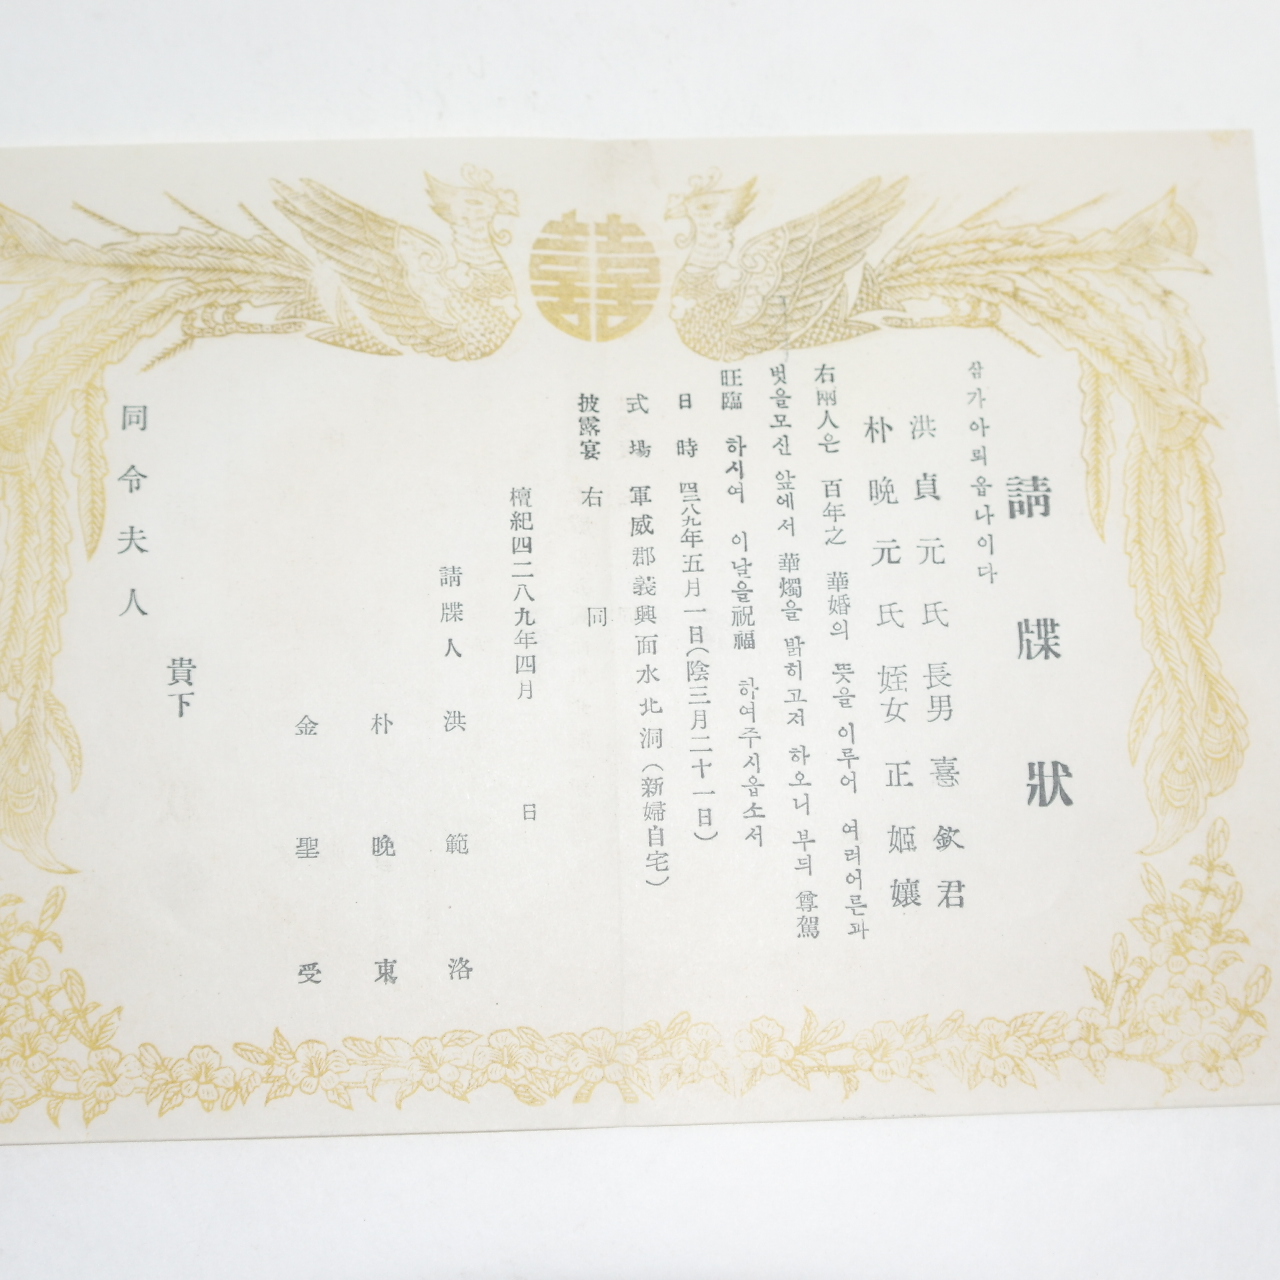 囍
請牒狀
삼가아뢰옵나이다
洪貞元氏 長男 喜欽君
朴晩元氏 姪女 正姬孃
右兩人은 百年之 華婚의 뜻을이루어 여러어른과
벗을모신 앞에서 華燭을 밝히고저 하오니 부듸 尊駕
旺臨 하시여 이날을祝福 하여주시옵소서
日時 四二八九年五月一日(陰三月二十一日)
式場 軍威郡義興面水北洞(新婦自宅)
披露宴 右同
檀紀四二八九年四月 日
請牒人 洪範洛
朴晩東
金聖受
貴下
同令夫人